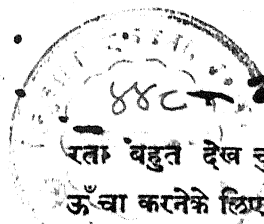 ४४८
रता बहुत देख चु
ऊँचा करनेके लिए